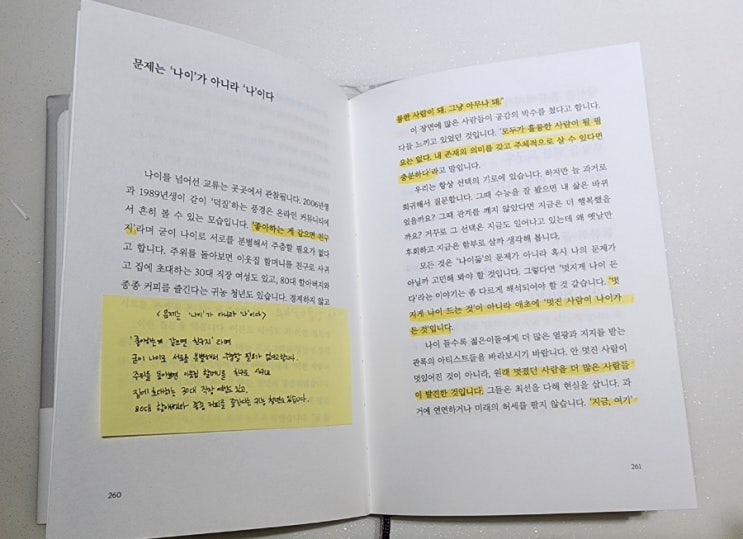 문제는 ‘나이’가 아니라 ‘나’이다
나이를 넘어선 교류는 곳곳에서 관찰됩니다. 2006년생
과 1989년생이 같이 ‘덕질’하는 풍경은 온라인 커뮤니티에
서 흔히 볼 수 있는 모습입니다. ‘좋아하는 게 같으면 친구
지’라며 굳이 나이로 서로를 분별해서 주춤할 필요가 없다
고 합니다. 주위를 돌아보면 이웃집 할머니를 친구로 사귀
고 집에 초대하는 30대 직장 여성도 있고, 80대 할아버지와
종종 커피를 즐긴다는 귀농 청년도 있습니다. 경계하지 않고
<문제는 '나이'가 아니라 '나'이다>
'좋아하는게 같으면 친구지' 라며
굳이 나이로 서로를 분별해서 주춤할 필요가 없다고합니다.
주위를 돌아보면 이웃집 할머니를 친구로 사귀고
집에 초대하는 30대 직장 여성도 있고,
80대 할아버지와 종종 커피를 즐긴다는 귀농 청년도 있습니다.
260
륭한 사람이 돼. 그냥 아무나 돼.”
이 장면에 많은 사람들이 공감의 박수를 쳤다고 합니다.
다들 느끼고 있었던 것입니다. ‘모두가 훌륭한 사람이 될 필
요는 없다. 내 존재의 의미를 갖고 주체적으로 살 수 있다면
충분하다’라고 말입니다.
우리는 항상 선택의 기로에 있습니다. 하지만 늘 과거로
회귀해서 질문합니다. 그때 수능을 잘 봤으면 내 삶은 바뀌
었을까? 그때 관계를 깨지 않았다면 지금은 더 행복했을
까요? 거꾸로 그 선택은 지금도 일어나고 있는데 왜 옛날만
후회하고 지금은 함부로 살까 생각해 봅니다.
모든 것은 ‘나이듦’의 문제가 아니라 혹시 나의 문제가
아닐까 고민해 봐야 할 것입니다. 그렇다면 ‘멋지게 나이 든
다’라는 이야기는 좀 다르게 해석되어야 할 것 같습니다. ‘멋
지게 나이 드는 것’이 아니라 애초에 ‘멋진 사람이 나이가
든 것’입니다.
나이 들수록 젊은이들에게 더 많은 열광과 지지를 받는
관록의 아티스트들을 바라보시기 바랍니다. 안 멋진 사람이
멋있어진 것이 아니라, 원래 멋졌던 사람을 더 많은 사람들
이 발견한 것입니다. 그들은 최선을 다해 현실을 삽니다. 과
거에 연연하거나 미래의 허세를 팔지 않습니다. ‘지금, 여기’
261